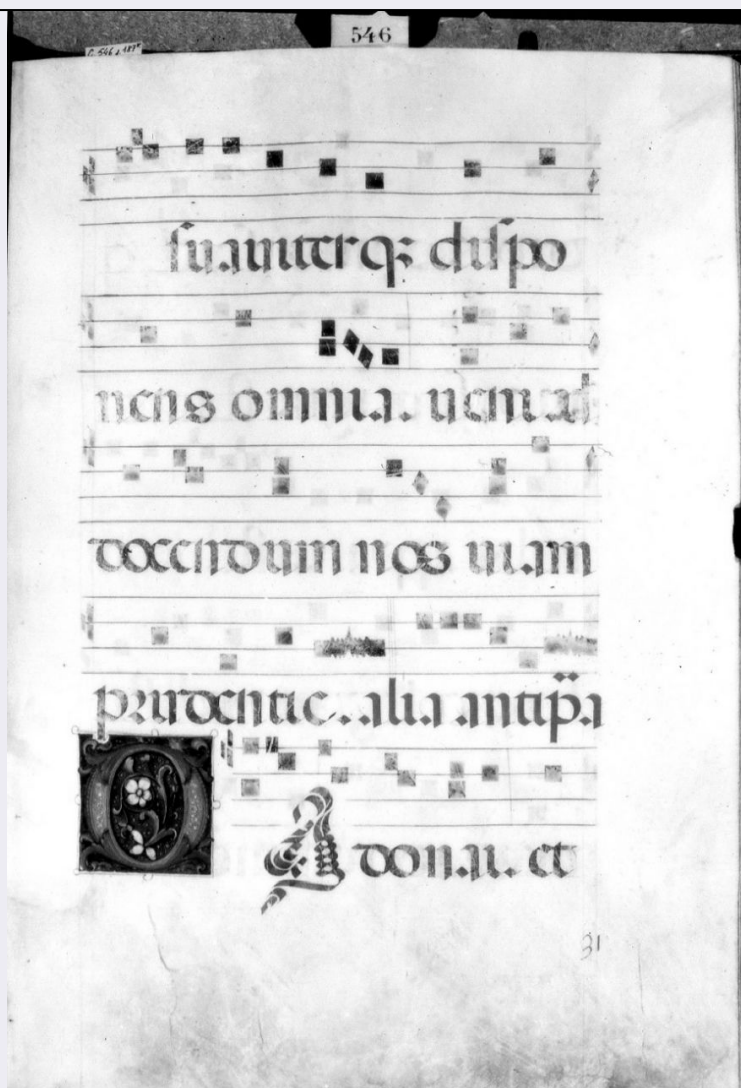 546
C. 546 c. 187r
suauiterq; dispo
nens omnia. ueni a
docendum nos uiam
prudentie. alia antipħa
O Adonai. et
31